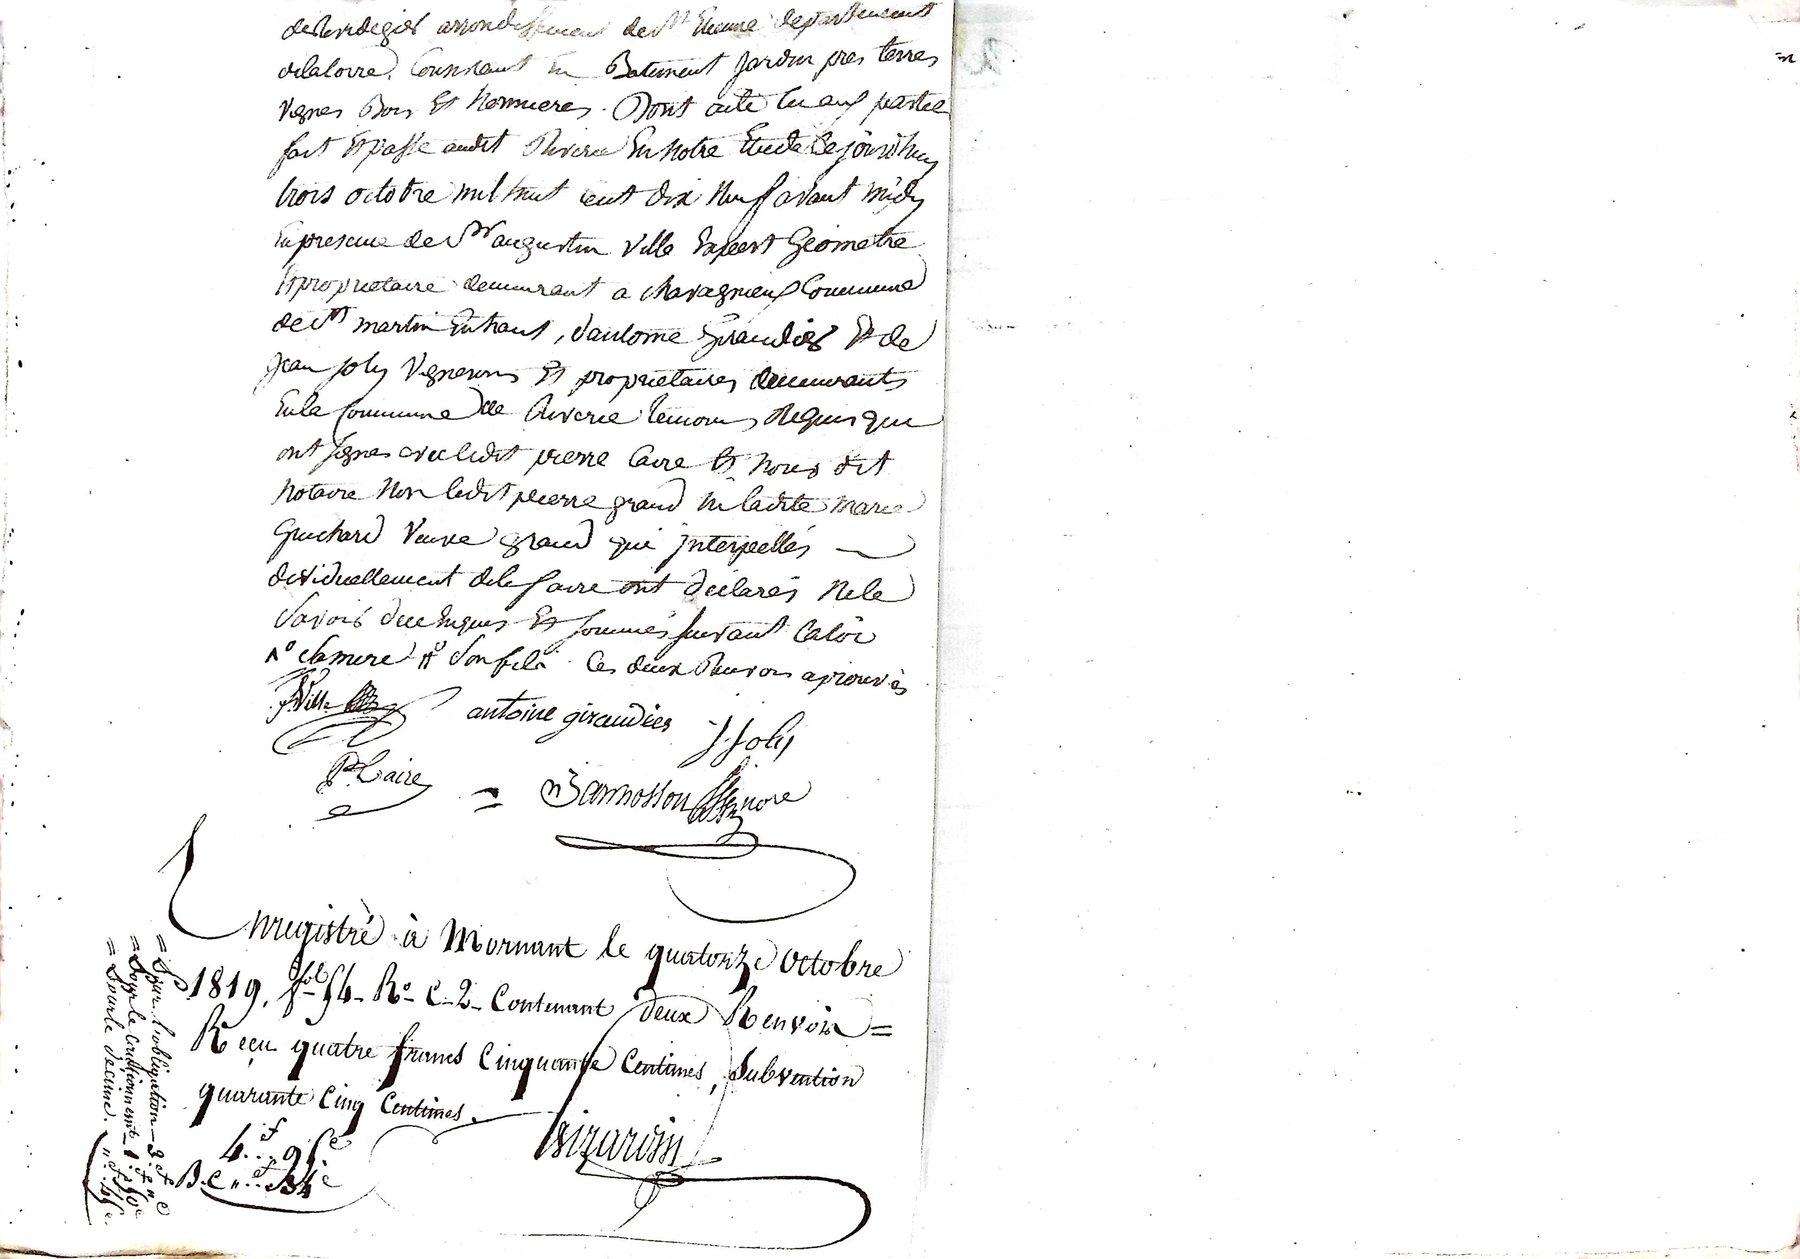 de Tartaras arrondissement de St Etienne departement
dela loire, Consistant En Batiment Jardin pres terres
vignes Bois Et hermieres. Dont acte lu aux parties
fait Et passé audit Riverie En notre Etude Ce jourdhuy
trois octobre mil huit cent dix neuf avant midy
En presence de Sr augustin Ville Expert Geometre
Et proprietaire demeurant a chavagnieux Commune
de St martin En haut, d'antoine Giraudier Et de
Jean Joly Vignerons Et proprietaires demeurants
En la Commune de Riverie temoins Requis qui
ont signes avec ledit pierre Caire Et nous dit
notaire Non ledit pierre grand ni ladite marie
Guichard Veuve grand qui interpellés
dividuellement de le faire ont déclarés Ne le
Savoir de ce Enquis Et sommés suivant la loi
no sa mere no Son fils. Ces deux Renvois aprouvés
Ville antoine giraudier J. Joly
Pre Caire = Bannosson nore
Enregistré à Mornant le quatorze Octobre
1819, fol 54 Ro C 2 Contenant deux Renvois =
Reçu quatre francs Cinquante Centimes, Subvention
quarante Cinq Centimes.
4f..95c Girardin
B.C „f..34c
= Pour l'obligation 3f „c
= Pour le Cautionnement 1f 50c
= Pour le decime „f 45c